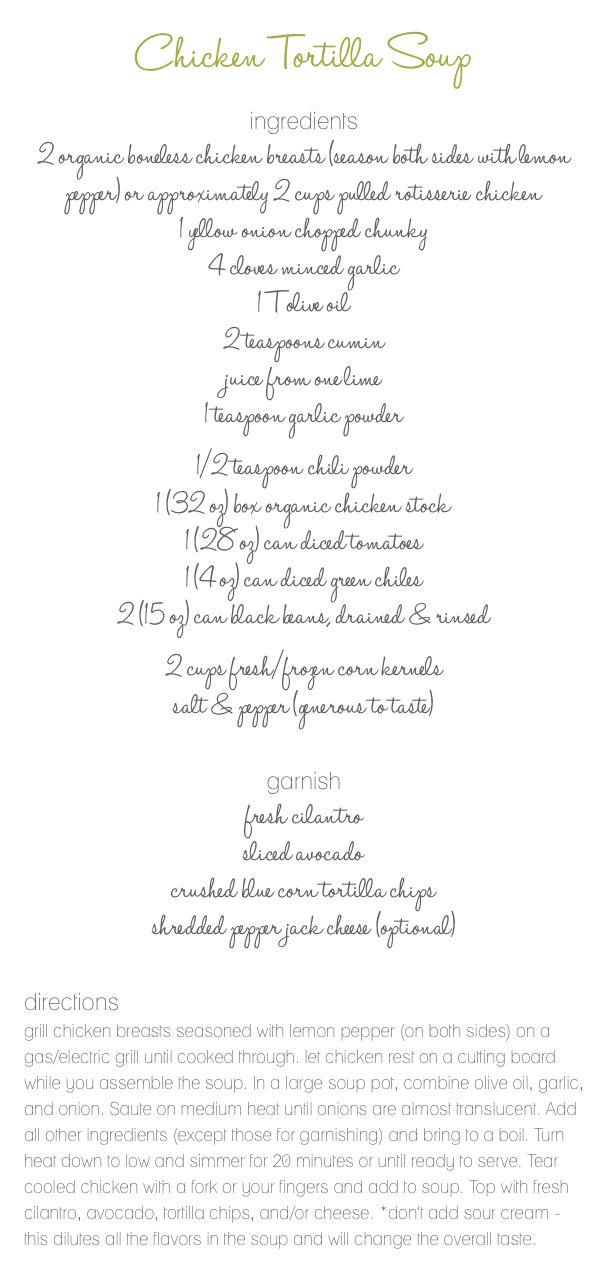 Chicken Tortilla Soup
ingredients
2 organic boneless chicken breasts (season both sides with lemon
pepper) or approximately 2 cups pulled rotisserie chicken
1 yellow onion chopped chunky
4 cloves minced garlic
1 T olive oil
2 teaspoons cumin
juice from one lime
1 teaspoon garlic powder
1/2 teaspoon chili powder
1 (32 oz) box organic chicken stock
1 (28 oz) can diced tomatoes
1 (4 oz) can diced green chiles
2 (15 oz) can black beans, drained & rinsed
2 cups fresh/frozen corn kernels
salt & pepper (generous to taste)
garnish
fresh cilantro
sliced avocado
crushed blue corn tortilla chips
shredded pepper jack cheese (optional)
directions
grill chicken breasts seasoned with lemon pepper (on both sides) on a
gas/electric grill until cooked through. let chicken rest on a cutting board
while you assemble the soup. In a large soup pot, combine olive oil, garlic,
and onion. Saute on medium heat until onions are almost translucent. Add
all other ingredients (except those for garnishing) and bring to a boil. Turn
heat down to low and simmer for 20 minutes or until ready to serve. Tear
cooled chicken with a fork or your fingers and add to soup. Top with fresh
cilantro, avocado, tortilla chips, and/or cheese. *don't add sour cream -
this dilutes all the flavors in the soup and will change the overall taste.